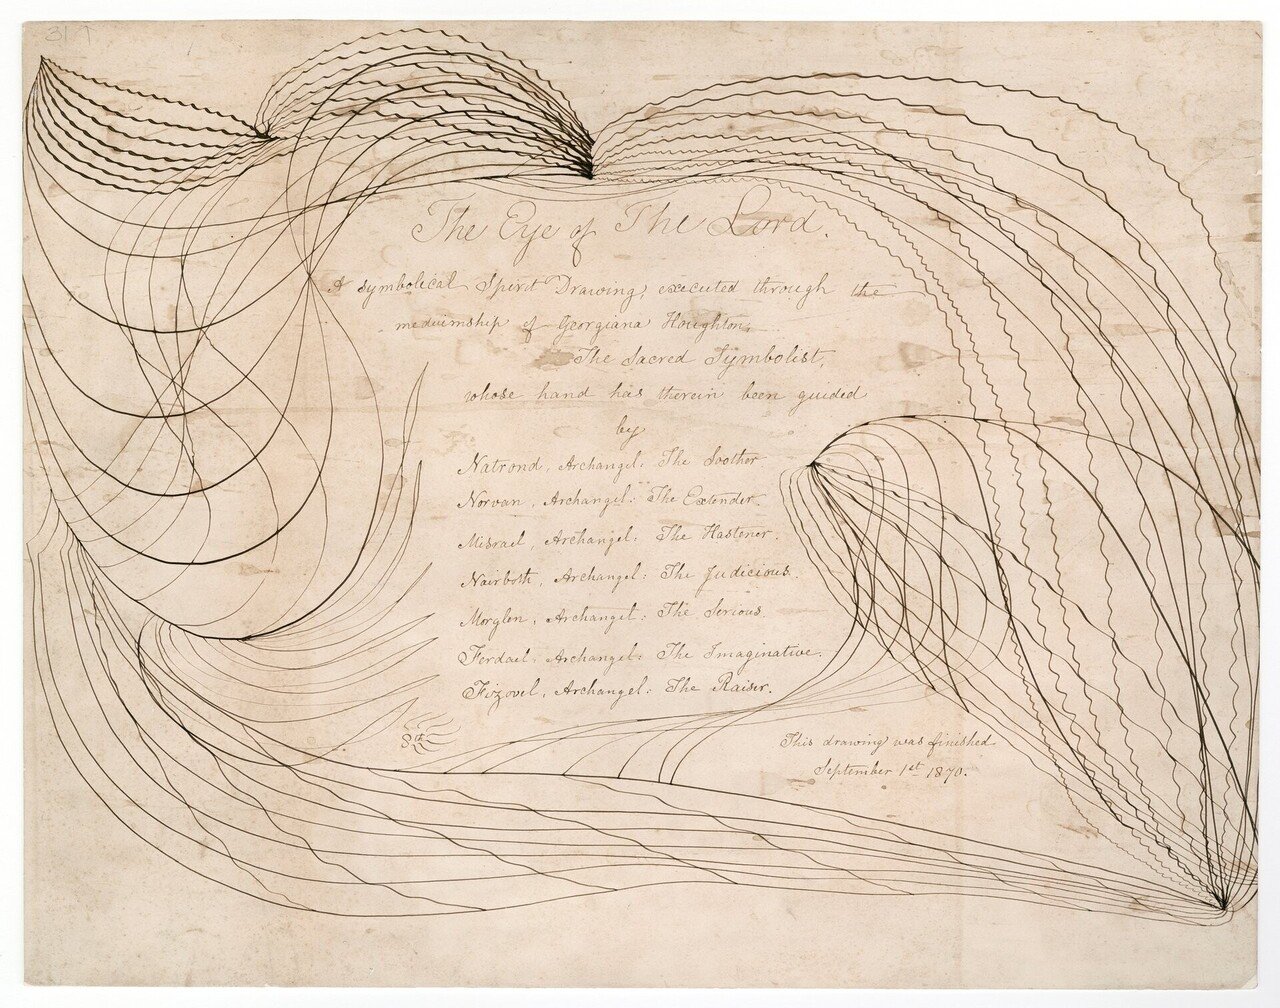 317
The Eye of The Lord.
A symbolical Spirit Drawing, executed through the
mediumship of Georgiana Houghton,
The Sacred Symbolist,
whose hand has therein been guided
by
Natrond, Archangel: The Soother
Norvan, Archangel: The Extender.
Misrael, Archangel: The Hastener.
Nairboth, Archangel: The Judicious.
Morglen, Archangel: The Serious.
Ferdael, Archangel: The Imaginative.
Fizovel, Archangel: The Raiser.
This drawing was finished
September 1st 1870.